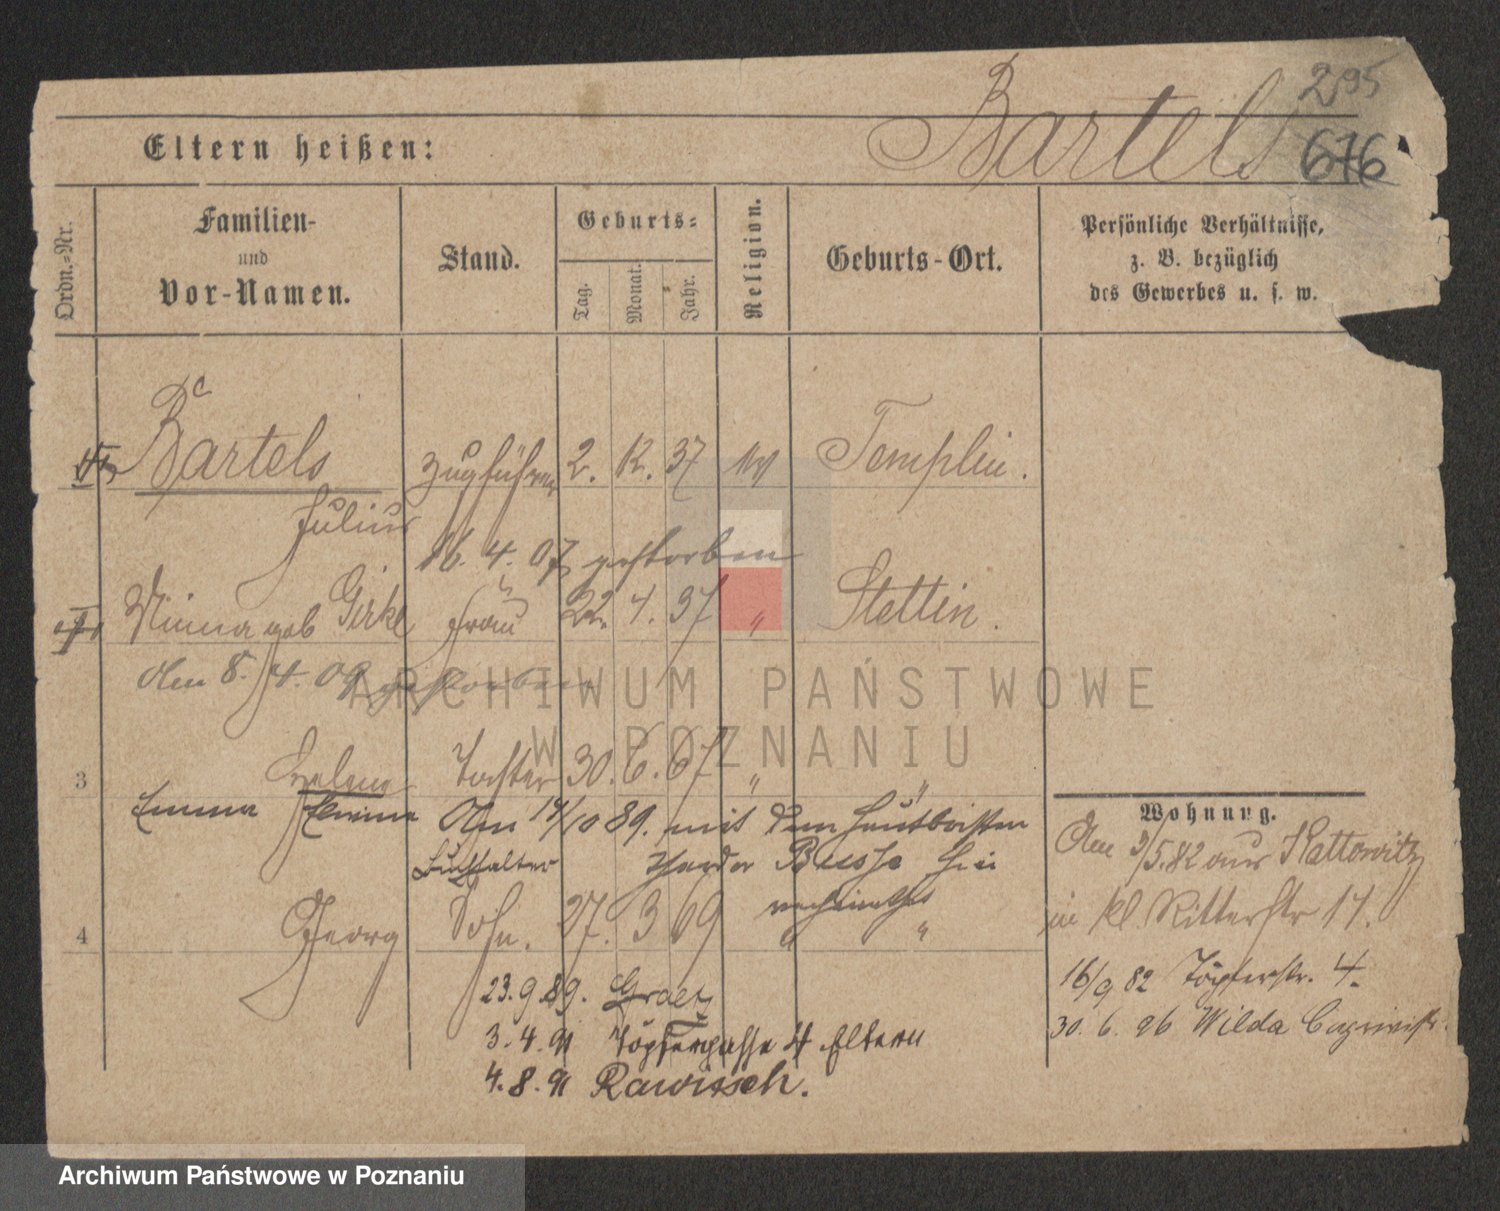 295
Eltern heißen:
Bartels
676
Ordn.-Nr.
Familien-
und
Vor-Namen.
Stand.
Geburts-
Tag.
Monat.
Jahr.
Religion.
Geburts-Ort.
Persönliche Verhältnisse,
z. B. bezüglich
des Gewerbes u. s. w.
Bartels Zugführer 2. 12. 37 Templin.
Julius
16. 4. 07 gestorben
Minna geb Girke Frau 22. 4. 37 " Stettin.
den 8. 4. 09 gestorben
3 Helene Tochter 30. 6. 67 " "
Emma Emma Am 14/10 89. mit dem Hautboisten
Buchhalter Busse hier
verheirathet
4 Georg Sohn. 27. 3 69 " "
23. 9. 89. Graetz
3. 4. 91 Töpfergasse 4 Eltern
4. 8. 91 Rawitsch.
Wohnung.
Am 3/5. 82 aus Kattowitz
in kl. Ritterstr 14.
16/9 82 Töpferstr. 4.
30. 6. 96 Wilda
ARCHIWUM PAŃSTWOWE
W POZNANIU
Archiwum Państwowe w Poznaniu